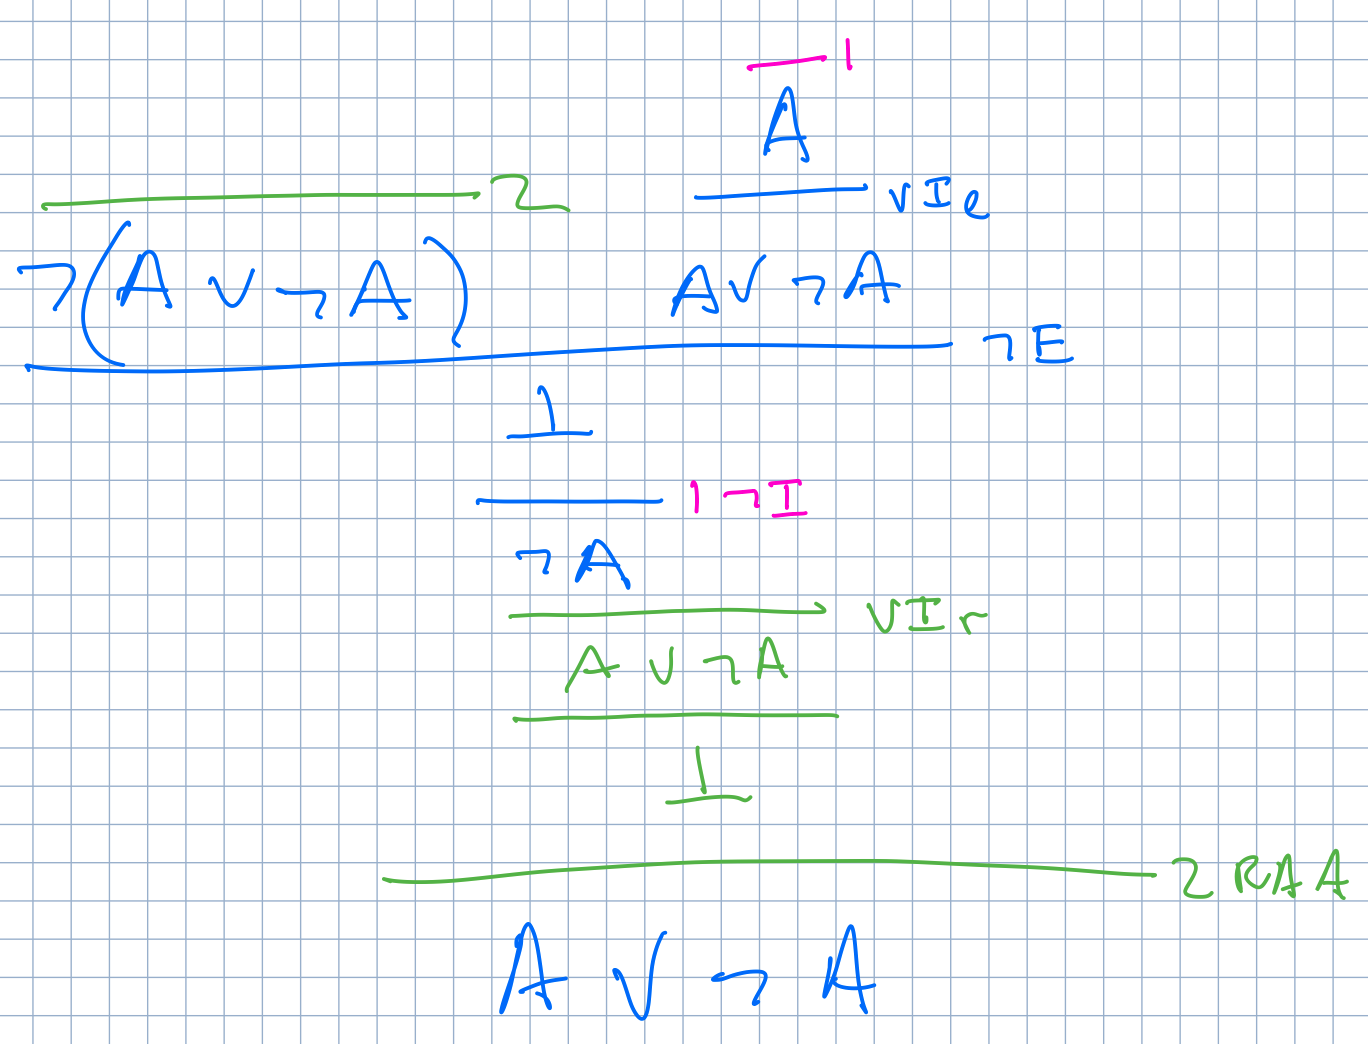 1
A
2
∨Iℓ
¬(A ∨ ¬A) A∨¬A
¬E
⊥
1 ¬I
¬A
∨Ir
A ∨ ¬A
⊥
2 RAA
A ∨ ¬A